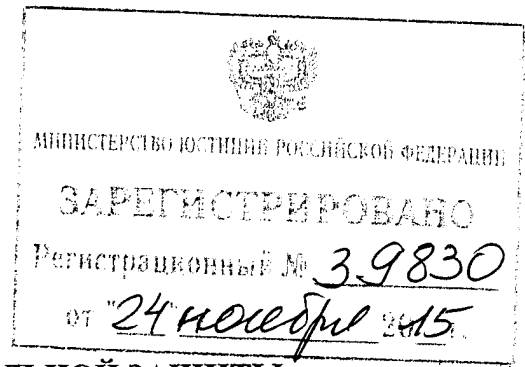 МИНИСТЕРСТВО ЮСТИЦИИ РОССИЙСКОЙ ФЕДЕРАЦИИ
ЗАРЕГИСТРИРОВАНО
Регистрационный № 39830
от "24" ноября 2015 г.
ЛЬНОЙ ЗАЩИТЫ